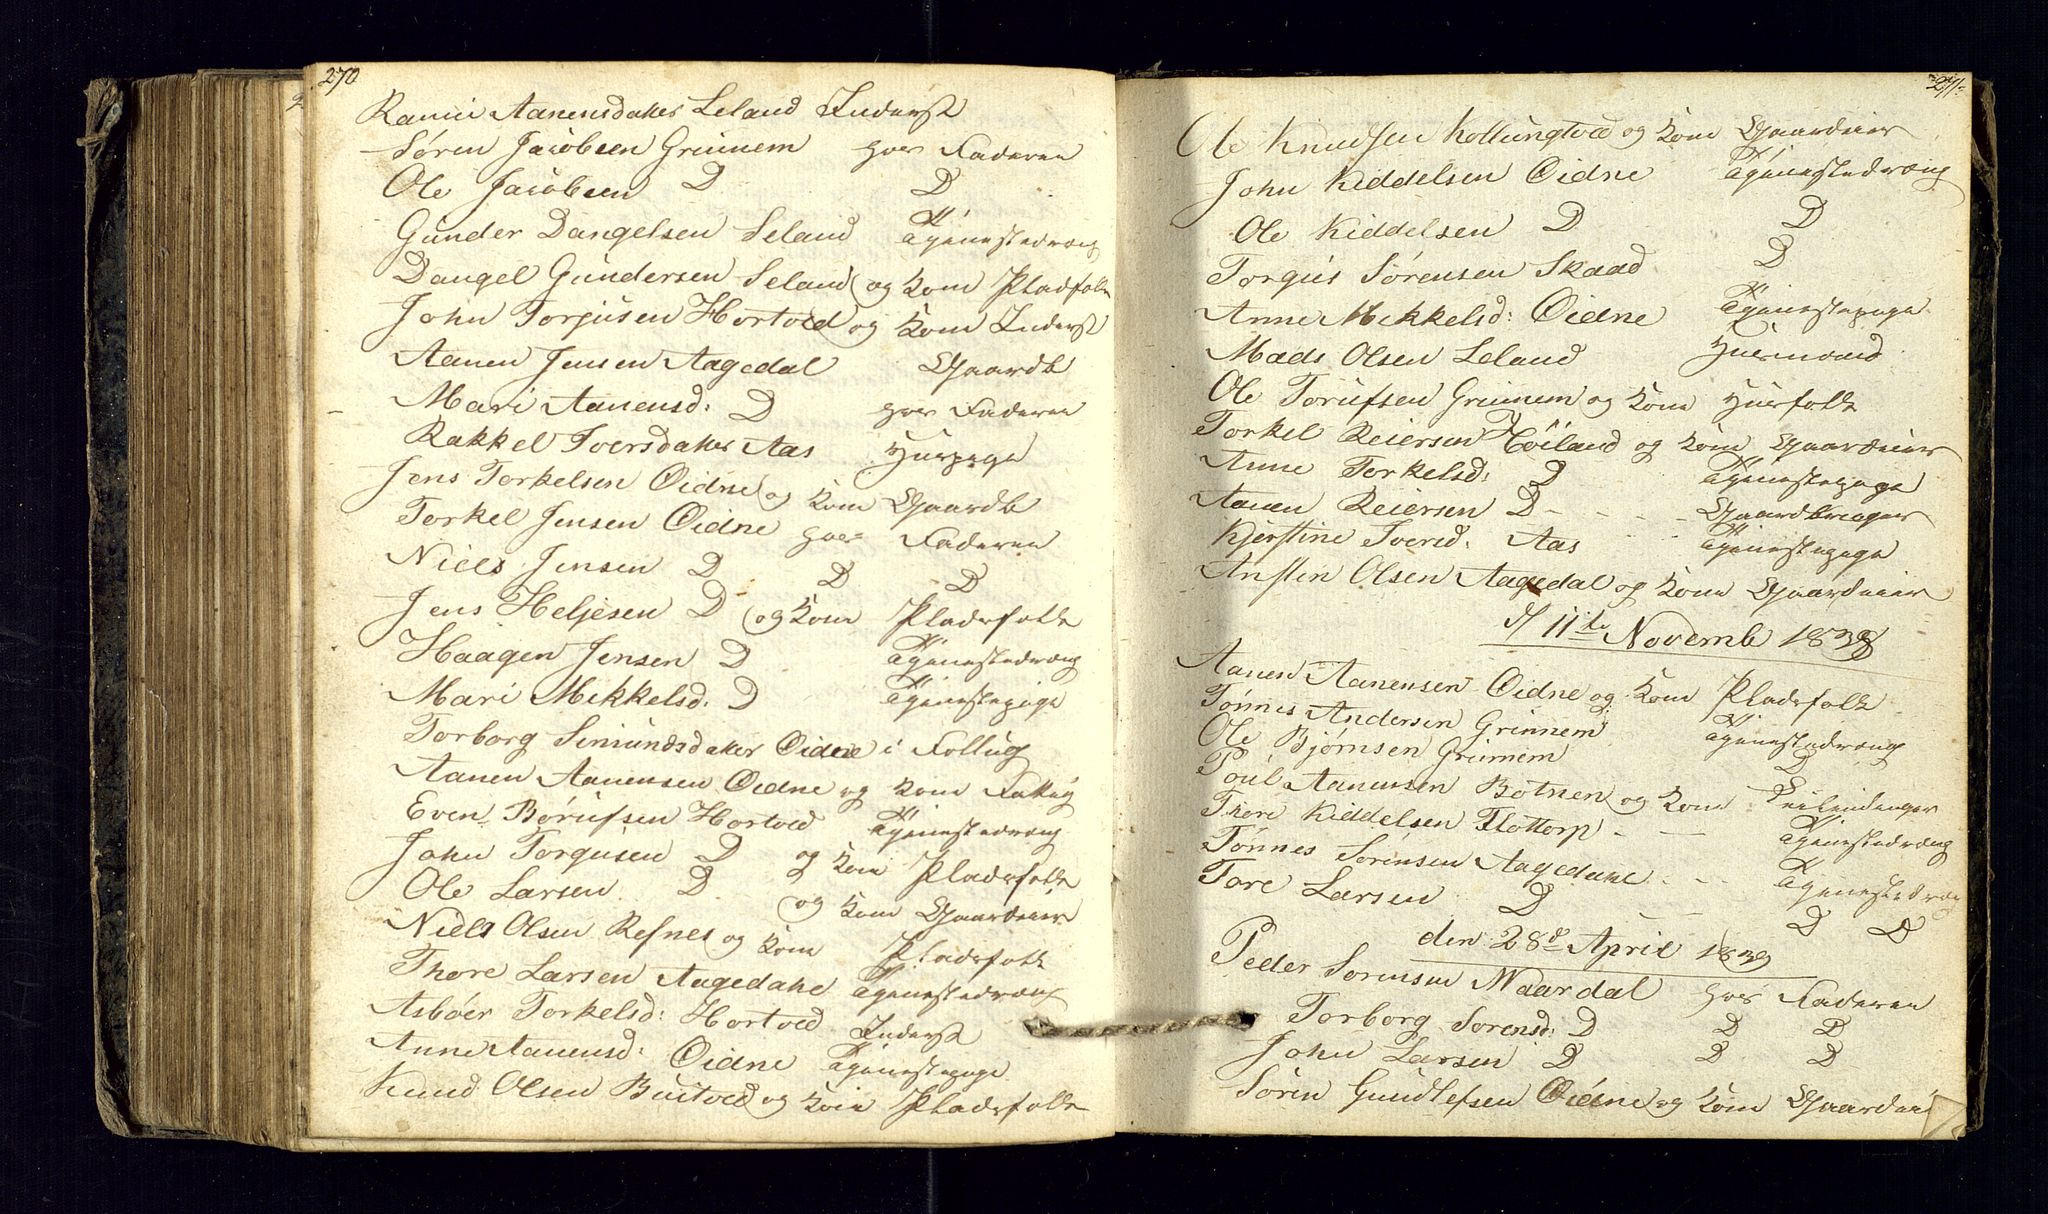 270
Ranni Aanensdater Leland Inderst
Søren Jacobsen Grimnem hos Faderen
Ole Jacobsen D D
Gunder Dangelsen Seland Tjenestedræng
Dangel Gundersen Seland og Kone Pladsfolk
John Torjusen Hortved og Kone Inderst
Aanen Jensen Aagedal Gaardb
Mari Aanensd: D hos Faderen
Rakkel Iversdater Aas Huspige
Jens Torkelsen Øidne og Kone Gaardb
Torkel Jensen Øidne hos Faderen
Niels Jensen D D D
Jens Heljesen D og Kone Pladsfolk
Haagen Jensen D Tjenestedræng
Mari Mikkelsd: D Tjenestepige
Torborg Simundsdater Øidne i Follug
Aanen Aanensen Øidne og Kone Fattig
Even Børufsen Hortved Tjenestedræng
John Torgusen D og Kone Pladsfolk
Ole Larsen D og Kone Gaardeier
Niels Olsen Refnes og Kone Pladsfolk
Thore Larsen Aagedahl Tjenestedræng
Asbøer Torkelsd: Hortved Inderst
Anne Aanensd: Øidne Tjenestepige
Knud Olsen Buitved og Kone Pladsfolk
271
Ole Knudsen Kollungtved og Kone Gaardeier
John Kiddelsen Øidne Tjenestedræng
Ole Kiddelsen D D
Torgus Sørensen Skaad D
Anne Mikkelsd: Øidne Tjenestepige
Mads Olsen Leland Huusmand
Ole Torufsen Grimnem og Kone Huusfolk
Torkel Reiersen Høiland og Kone Gaardeier
Anne Torkelsd: D Tjenestepige
Aanen Reiersen D - - - - Gaardbruger
Kjerstine Iversd. Aas - - - Tjenestepige
Ansten Olsen Aagedal og Kone Gaardeier
d 11te Novemb 1838
Aanen Aanensen Øidne og Kone Pladsfolk
Tønnes Andersen Grimnem Tjenestedræng
Ole Bjørnsen Grimnem D
Poul Aanensen Botnen og Kone
Thore Kiddelsen Flottorp - - Tjenestedræng
Tønnes Sørensen Aagedahl - - Tjenestedræng
Tore Larsen D - D D
den 28d April 1839
Peder Sorensen Naardal hos Faderen
Torborg Sorensd: D D D
John Larsen D D D
Søren Gundlefsen Øidne og Kone Gaardeier